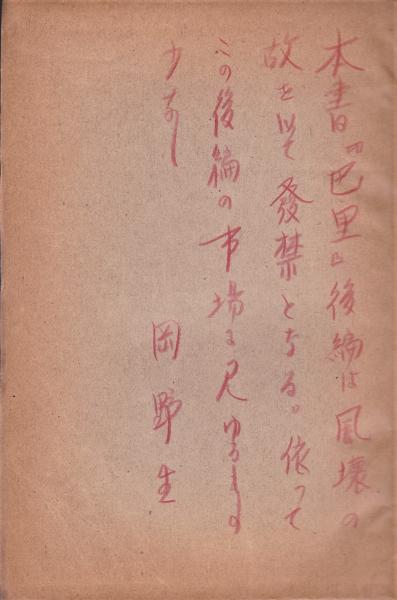 本書『巴里』後編は風壊の
故を以て發禁となる。依って
この後編の市場に見ゆるもの
少なし
岡野生